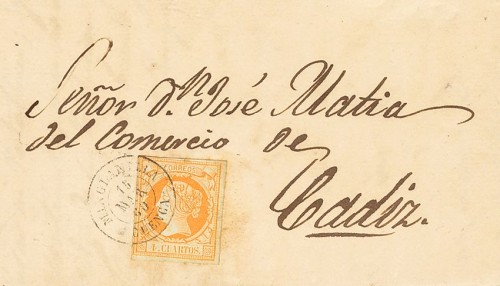 Señor D.ⁿ José Matia
del Comercio de
Cadiz.
CORREOS
4 CUARTOS
CUENCA